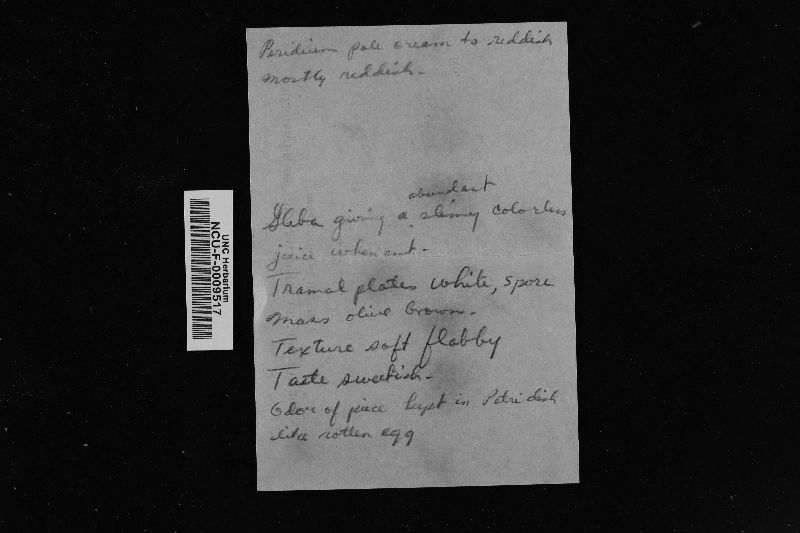 Peridium pale cream to reddish
mostly reddish.
abundant
Gleba giving a slimy colorless
juice when cut.
Tramal plates white, spore
mass olive brown.
Texture soft flabby
Taste sweetish.
Odor of piece kept in Petri dish
like rotten egg
UNC Herbarium
NCU-F-0009517